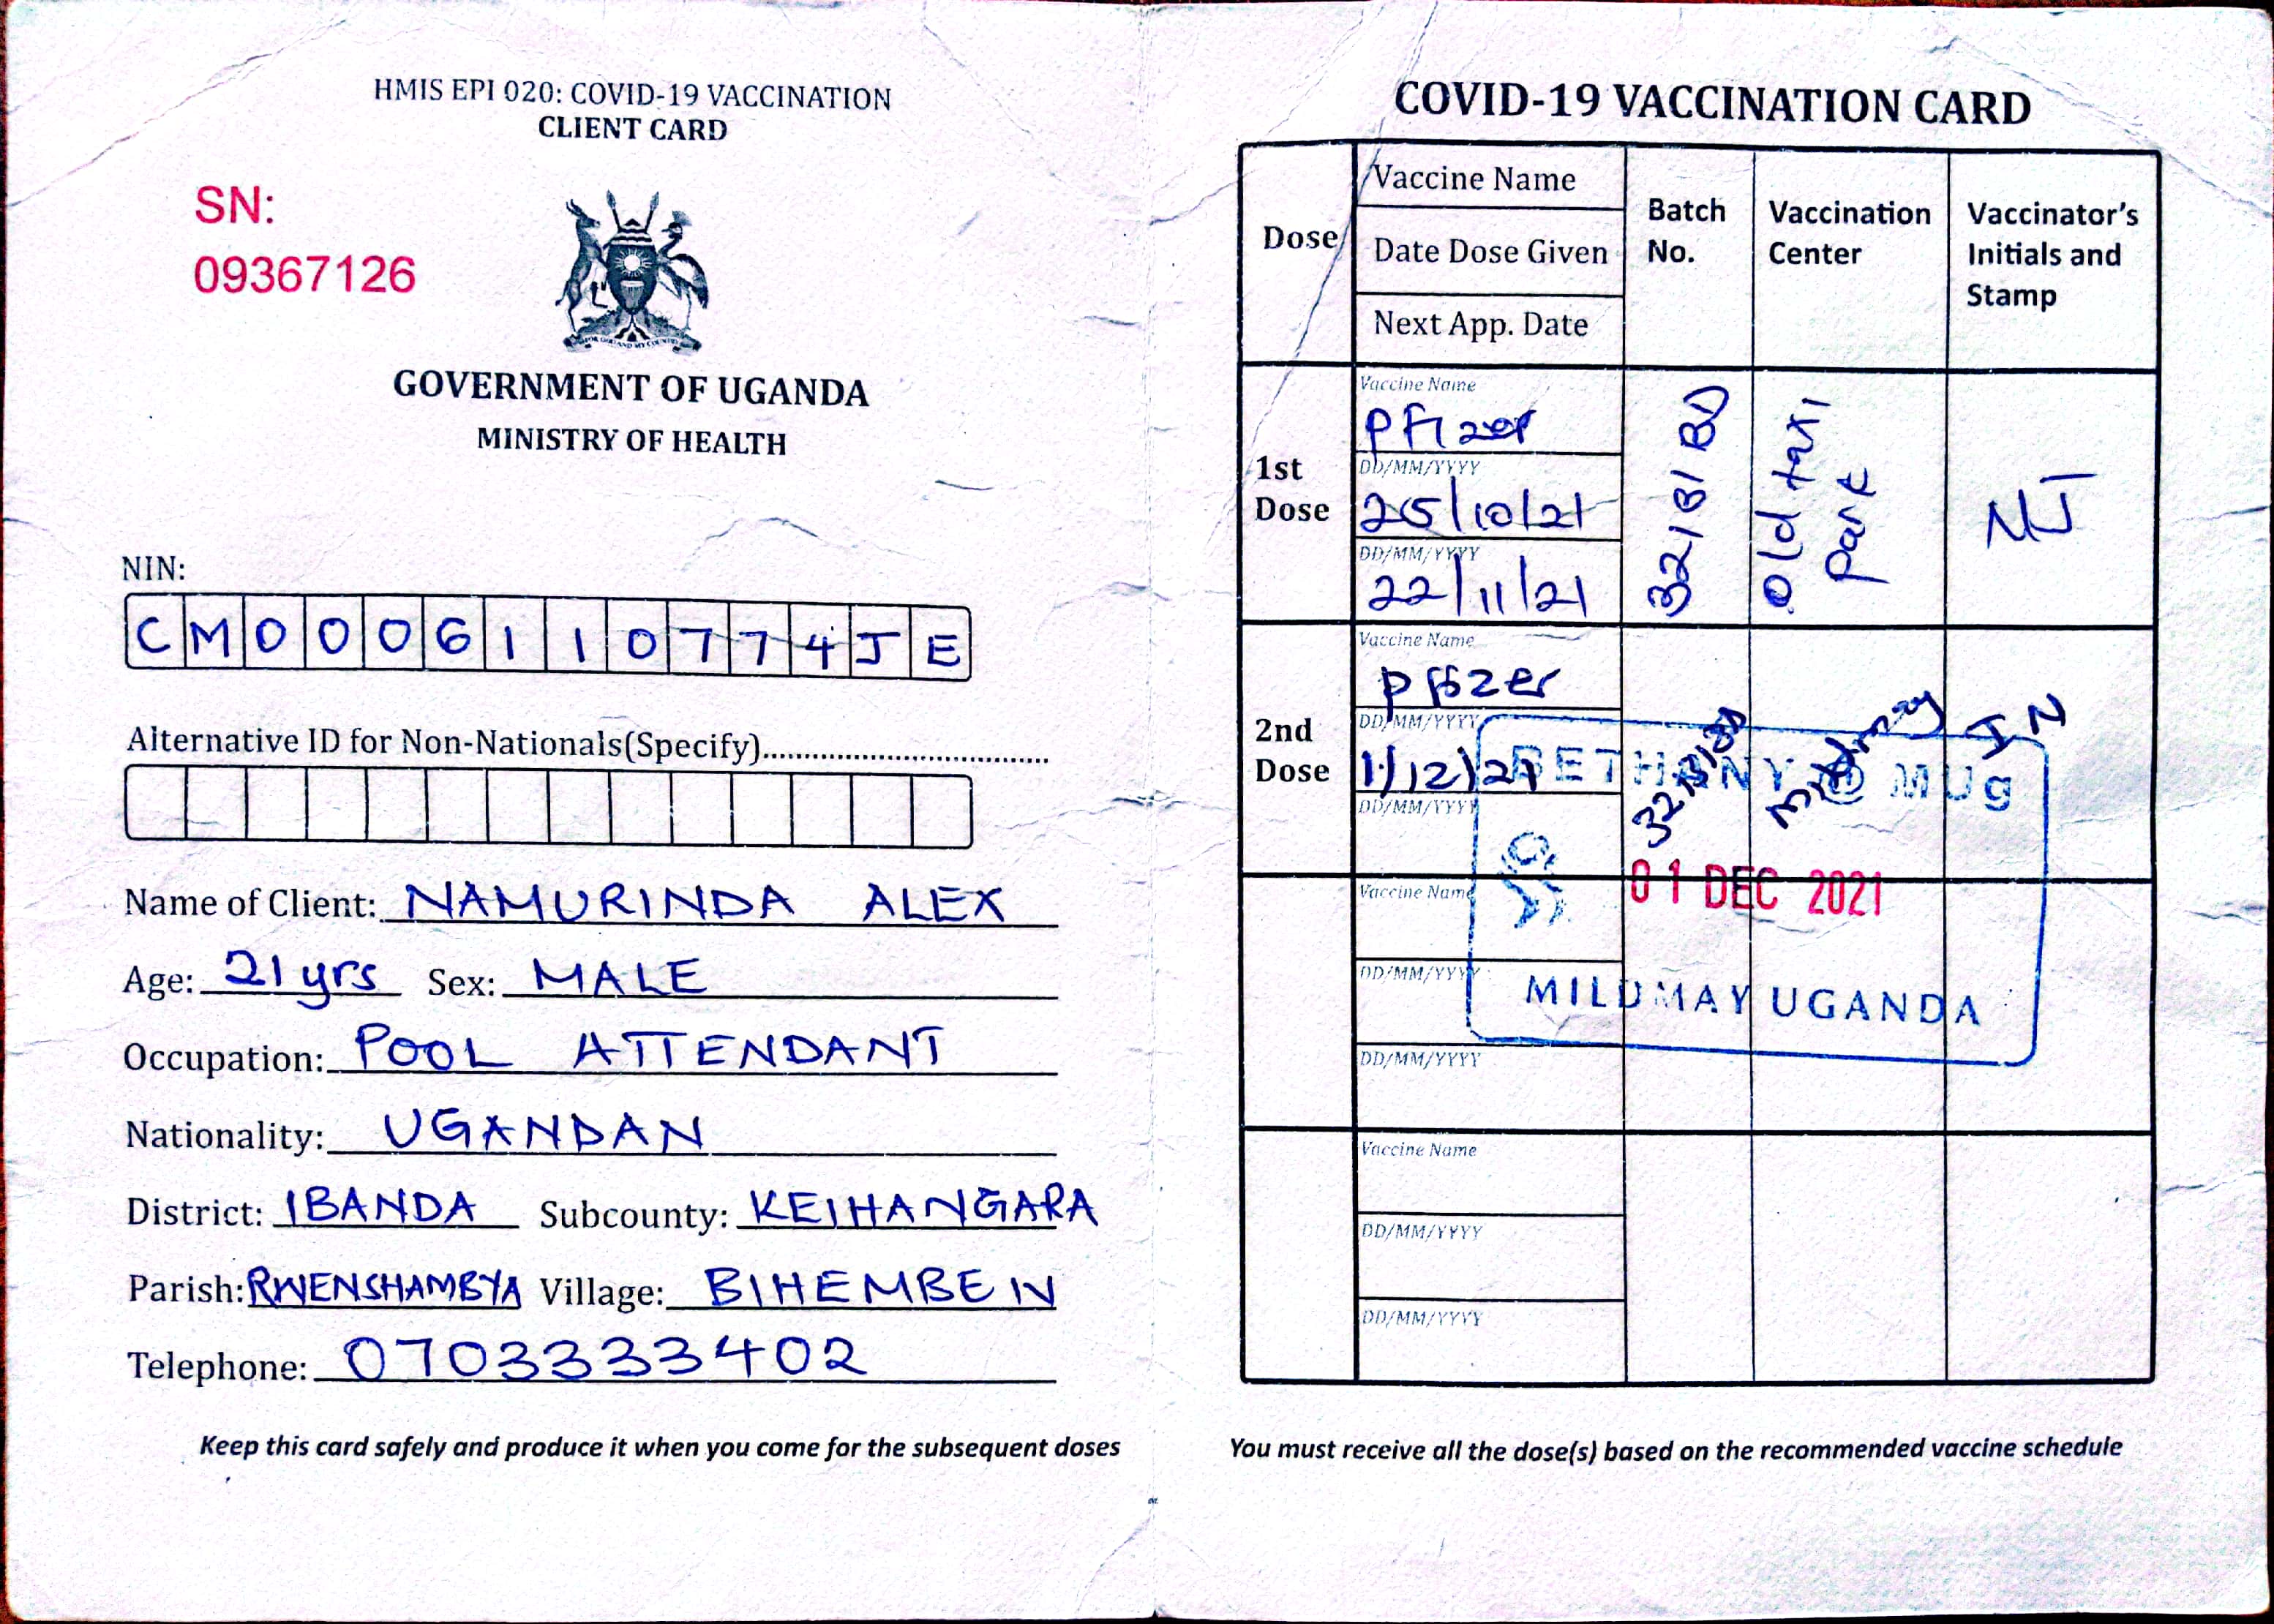 HMIS EPI 020: COVID-19 VACCINATION
CLIENT CARD
SN:
09367126
FOR GOD AND MY COUNTRY
GOVERNMENT OF UGANDA
MINISTRY OF HEALTH
NIN:
C M 0 0 0 6 1 1 0 7 7 4 J E
Alternative ID for Non-Nationals(Specify)....................................
Name of Client: NAMURINDA ALEX
Age: 21 yrs Sex: MALE
Occupation: POOL ATTENDANT
Nationality: UGANDAN
District: IBANDA Subcounty: KEIHANGARA
Parish: RWENSHAMBYA Village: BIHEMBE IV
Telephone: 0703333402
Keep this card safely and produce it when you come for the subsequent doses
COVID-19 VACCINATION CARD
Dose
Vaccine Name
Date Dose Given
Next App. Date
Batch
No.
Vaccination
Center
Vaccinator's
Initials and
Stamp
1st
Dose
Vaccine Name
Pfizer
DD/MM/YYYY
25/10/21
DD/MM/YYYY
22/11/21
old taxi
park
NJ
2nd
Dose
Vaccine Name
pfizer
DD/MM/YYYY
1/12/21
DD/MM/YYYY
Mildmay
JN
BETHANY @ MUg
01 DEC 2021
MILDMAY UGANDA
Vaccine Name
DD/MM/YYYY
DD/MM/YYYY
Vaccine Name
DD/MM/YYYY
DD/MM/YYYY
You must receive all the dose(s) based on the recommended vaccine schedule